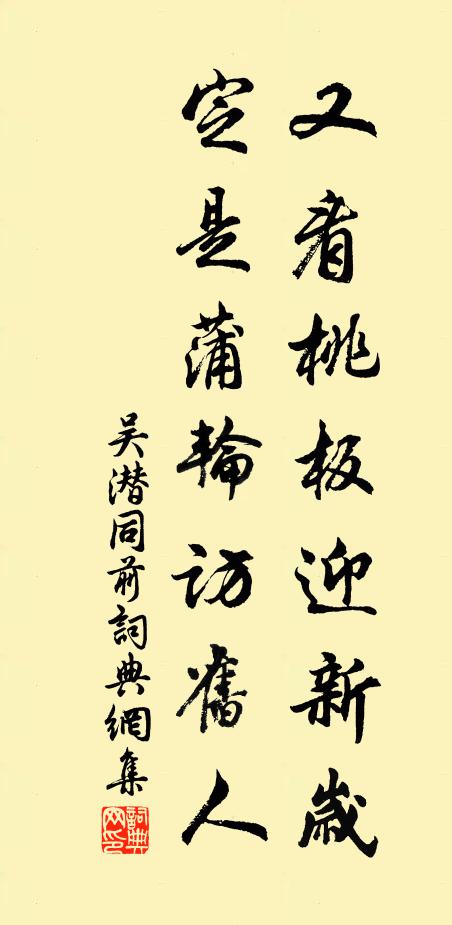 又看桃板迎新歲
定是蒲輪訪舊人
吴潜同前詞典網集
詞典
网印